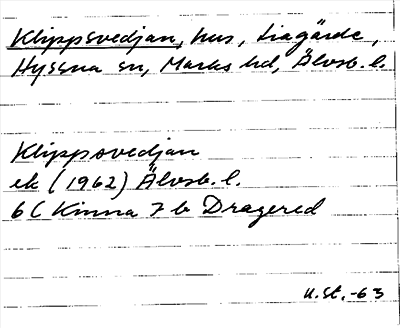 Klippsvedjan, hus, Liagärde,
Hyssna sn, Marks hd, Älvsb. l.
Klippsvedjan
ek (1962) Älvsb. l.
6C Kinna 7 b Dragered
U.St.-63